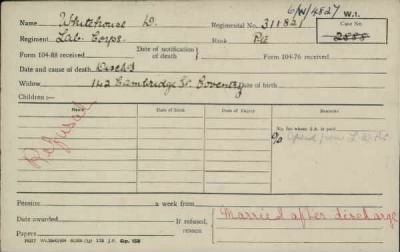 6/W/4827 W.1.
Name Whitehouse D. Regimental No. 31182
Case No.
2888
Regiment Lab. Corps. Rank Pte
Form 104-88 received Date of notification of death Form 104-76 received
Date and cause of death Disch'd
Widow 142 Cambridge St. Coventry Date of birth
Children:—
Names Date of Birth Date of Expiry No. for whom S.A. is paid
Refusal
Pension a week from
Date awarded If refused, reason
Married after discharge
Papers